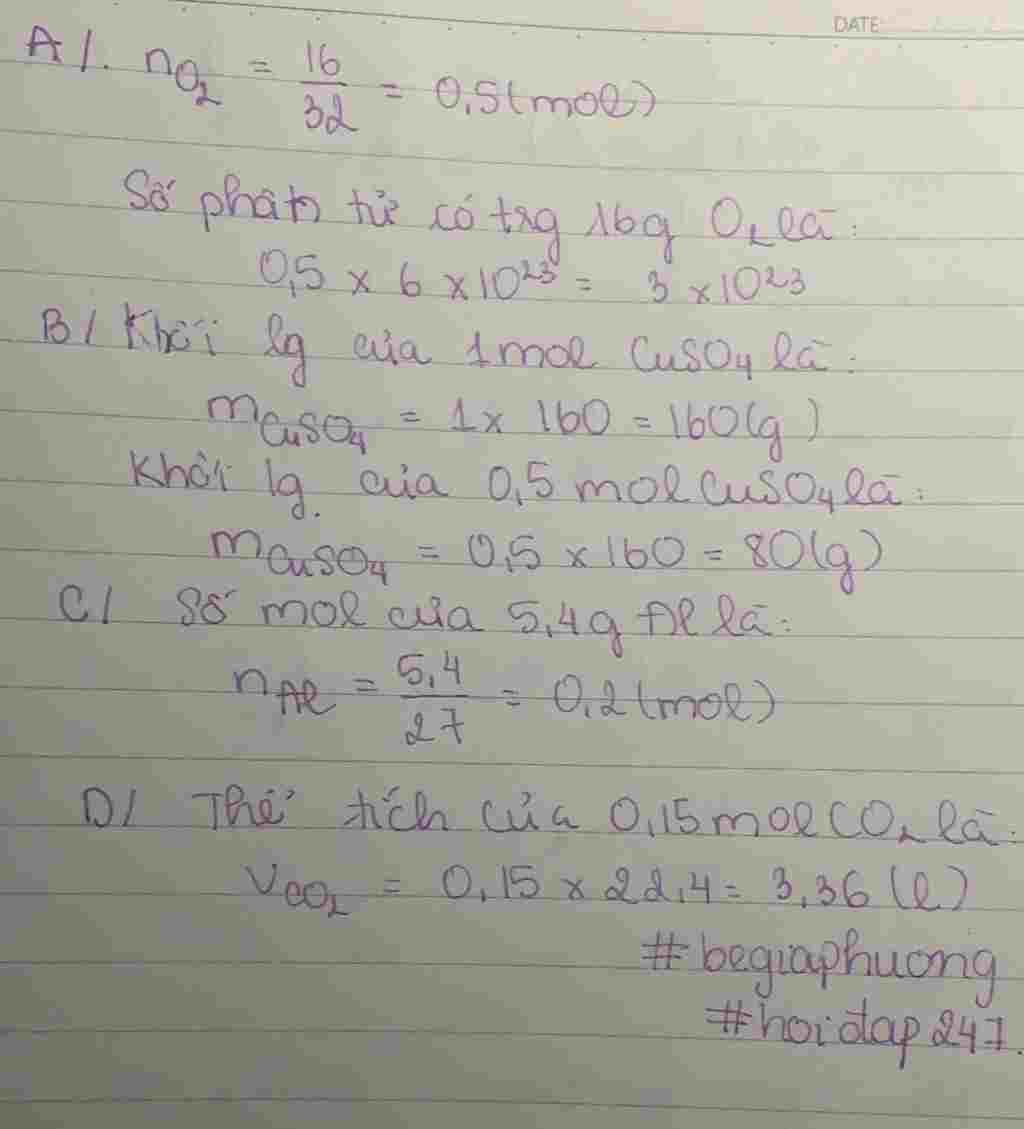 DATE
A/. nO₂ = 16/32 = 0,5 (mol)
Số phân tử có trg 16g O₂ là:
0,5 x 6 x 10²³ = 3 x 10²³
B/ Khối lg của 1 mol CuSO₄ là:
mCuSO₄ = 1 x 160 = 160 (g)
Khối lg. của 0,5 mol CuSO₄ là:
mCuSO₄ = 0,5 x 160 = 80 (g)
C/ Số mol của 5,4g Al là:
nAl = 5,4/27 = 0,2 (mol)
D/ Thể tích của 0,15 mol CO₂ là:
VCO₂ = 0,15 x 22,4 = 3,36 (l)
#begiaphuong
#hoidap247.